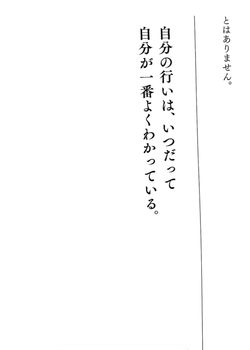 とはありません。
自分の行いは、いつだって
自分が一番よくわかっている。